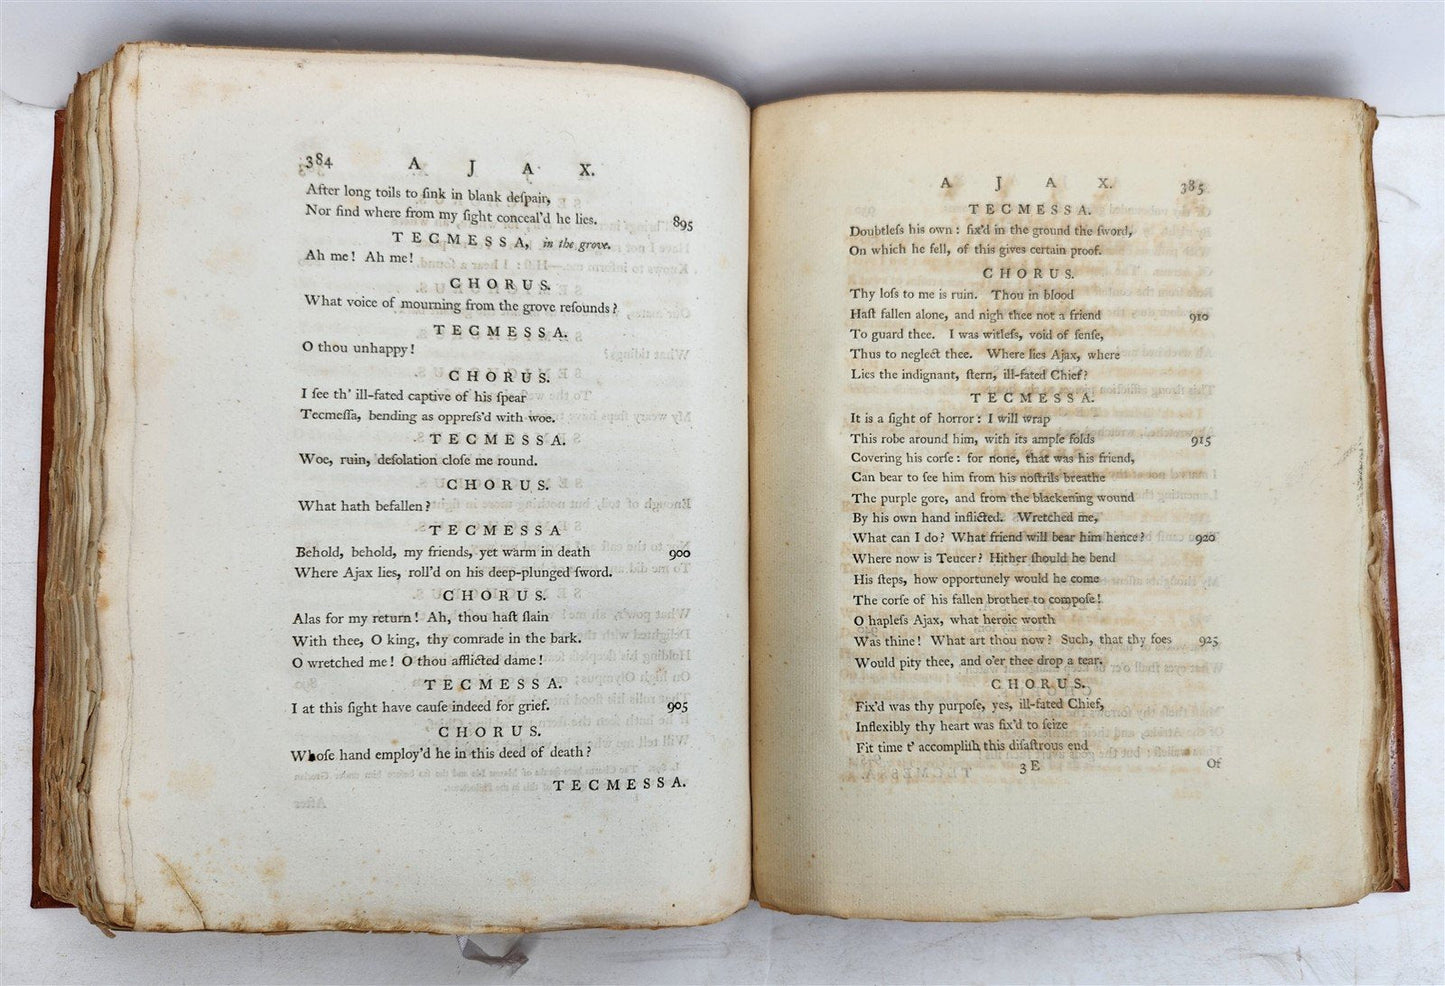 384 A J A X.
After long toils to ſink in blank deſpair,
Nor find where from my ſight conceal'd he lies. 895
TECMESSA, in the grove.
Ah me! Ah me!
CHORUS.
What voice of mourning from the grove reſounds?
TECMESSA.
O thou unhappy!
CHORUS.
I ſee th' ill-fated captive of his ſpear
Tecmeſſa, bending as oppreſs'd with woe.
TECMESSA.
Woe, ruin, deſolation cloſe me round.
CHORUS.
What hath befallen?
TECMESSA
Behold, behold, my friends, yet warm in death 900
Where Ajax lies, roll'd on his deep-plunged ſword.
CHORUS.
Alas for my return! Ah, thou haſt ſlain
With thee, O king, thy comrade in the bark.
O wretched me! O thou afflicted dame!
TECMESSA.
I at this ſight have cauſe indeed for grief. 905
CHORUS.
Whoſe hand employ'd he in this deed of death?
TECMESSA.
A J A X. 385
TECMESSA.
Doubtleſs his own: fix'd in the ground the ſword,
On which he fell, of this gives certain proof.
CHORUS.
Thy loſs to me is ruin. Thou in blood
Haſt fallen alone, and nigh thee not a friend 910
To guard thee. I was witleſs, void of ſenſe,
Thus to neglect thee. Where lies Ajax, where
Lies the indignant, ſtern, ill-fated Chief?
TECMESSA.
It is a ſight of horror: I will wrap
This robe around him, with its ample folds 915
Covering his corſe: for none, that was his friend,
Can bear to ſee him from his noſtrils breathe
The purple gore, and from the blackening wound
By his own hand inflicted. Wretched me,
What can I do? What friend will bear him hence? 920
Where now is Teucer? Hither ſhould he bend
His ſteps, how opportunely would he come
The corſe of his fallen brother to compoſe!
O hapleſs Ajax, what heroic worth
Was thine! What art thou now? Such, that thy foes 925
Would pity thee, and o'er thee drop a tear.
CHORUS.
Fix'd was thy purpoſe, yes, ill-fated Chief,
Inflexibly thy heart was fix'd to ſeize
Fit time t' accompliſh this diſaſtrous end
3 E Of